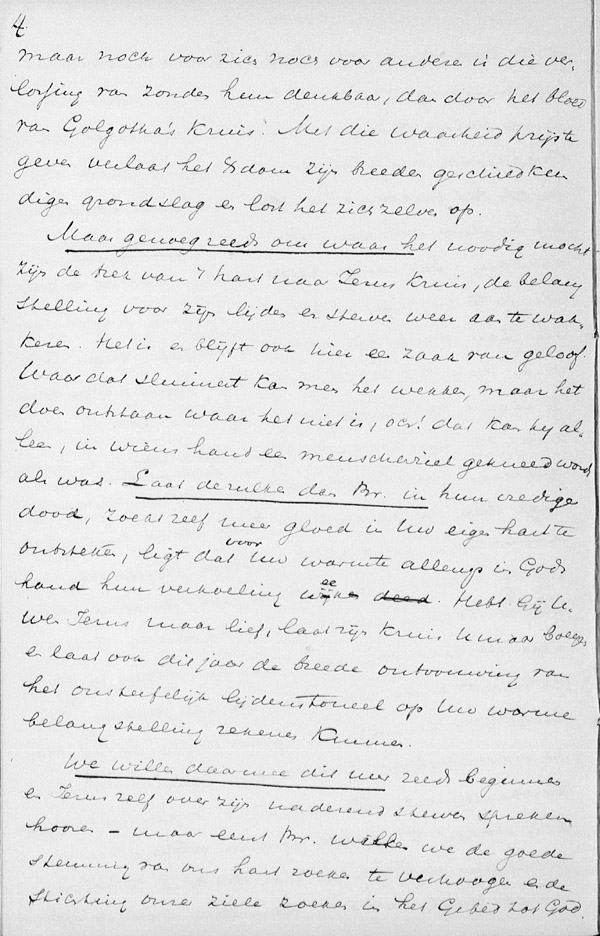 4.
maar noch voor zich noch voor anderen is die ver-
lossing van zonden hun denkbaar, dan door het bloed
van Golgotha's Kruis. Met die waarheid prijs te
geven verlaat het Xdom zijn breeden geschiedken
digen grondslag en lost het zich zelven op.
Maar genoeg reeds om waar het noodig mocht
zijn de trek van 't hart naar Jezus Kruis, de belang
stelling voor zijn lijden en sterven weer aan te wak-
keren. Het is en blijft ook hier een zaak van geloof.
Waar dat sluimert kan men het wekken, maar het
doen ontstaan waar het niet is, och! dat kan hij al-
leen, in wiens hand een menschenziel gekneed wordt
als was. Laat dezulken dan Br. in hun vredige
dood, zoekt zelf meer gloed in Uw eigen hart te
ontsteken, ligt dat voor Uw warmte allengs in Gods
hand hun verkoeling weeke deed. Hebt Gij U-
wen Jezus maar lief, laat zijn Kruis U maar boeien
en laat ook dit jaar de breede ontvouwing van
het onsterfelijk lijdenstoneel op Uw warme
belangstelling rekenen Kunnen.
We willen daarmee dit uur reeds beginnen
en Jezus zelf over zijn naderend sterven spreken
hooren – maar eerst Br. willen we de goede
stemming van ons hart zoeken te verhoogen en de
stichting onzer ziele zoeken in het Gebed tot God.